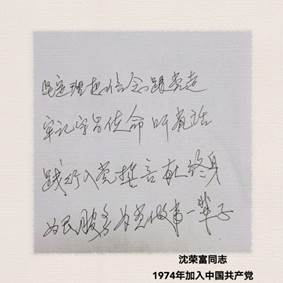 坚定理想信念跟党走
牢记宗旨使命听党话
践行入党誓言献终身
为民服务为党做事一辈子
沈荣富同志
1974年加入中国共产党